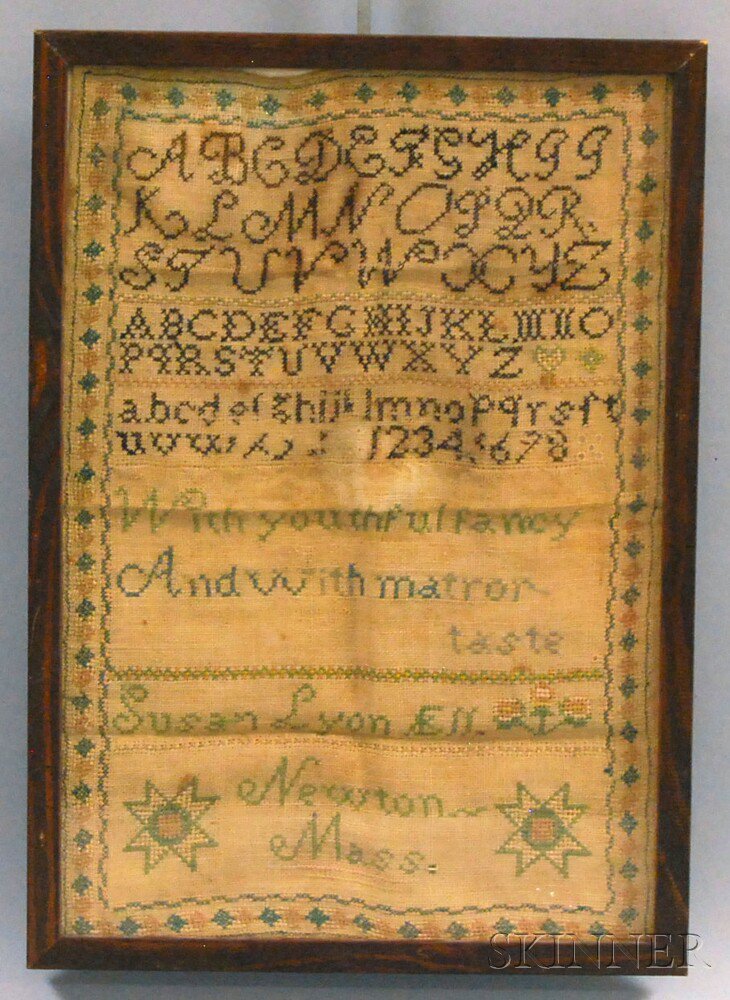 A B C D E F G H I J
K L M N O P Q R
S T U V W X Y Z
A B C D E F G H I J K L M N O
P Q R S T U V W X Y Z
a b c d e f g h i j k l m n o p q r s ſ t
u v w x 1 2 3 4 5 6 7 8
With youthful fancy
And with matron
taste
Susan Lyon Æ 11.
Newton
Mass.
SKINNER